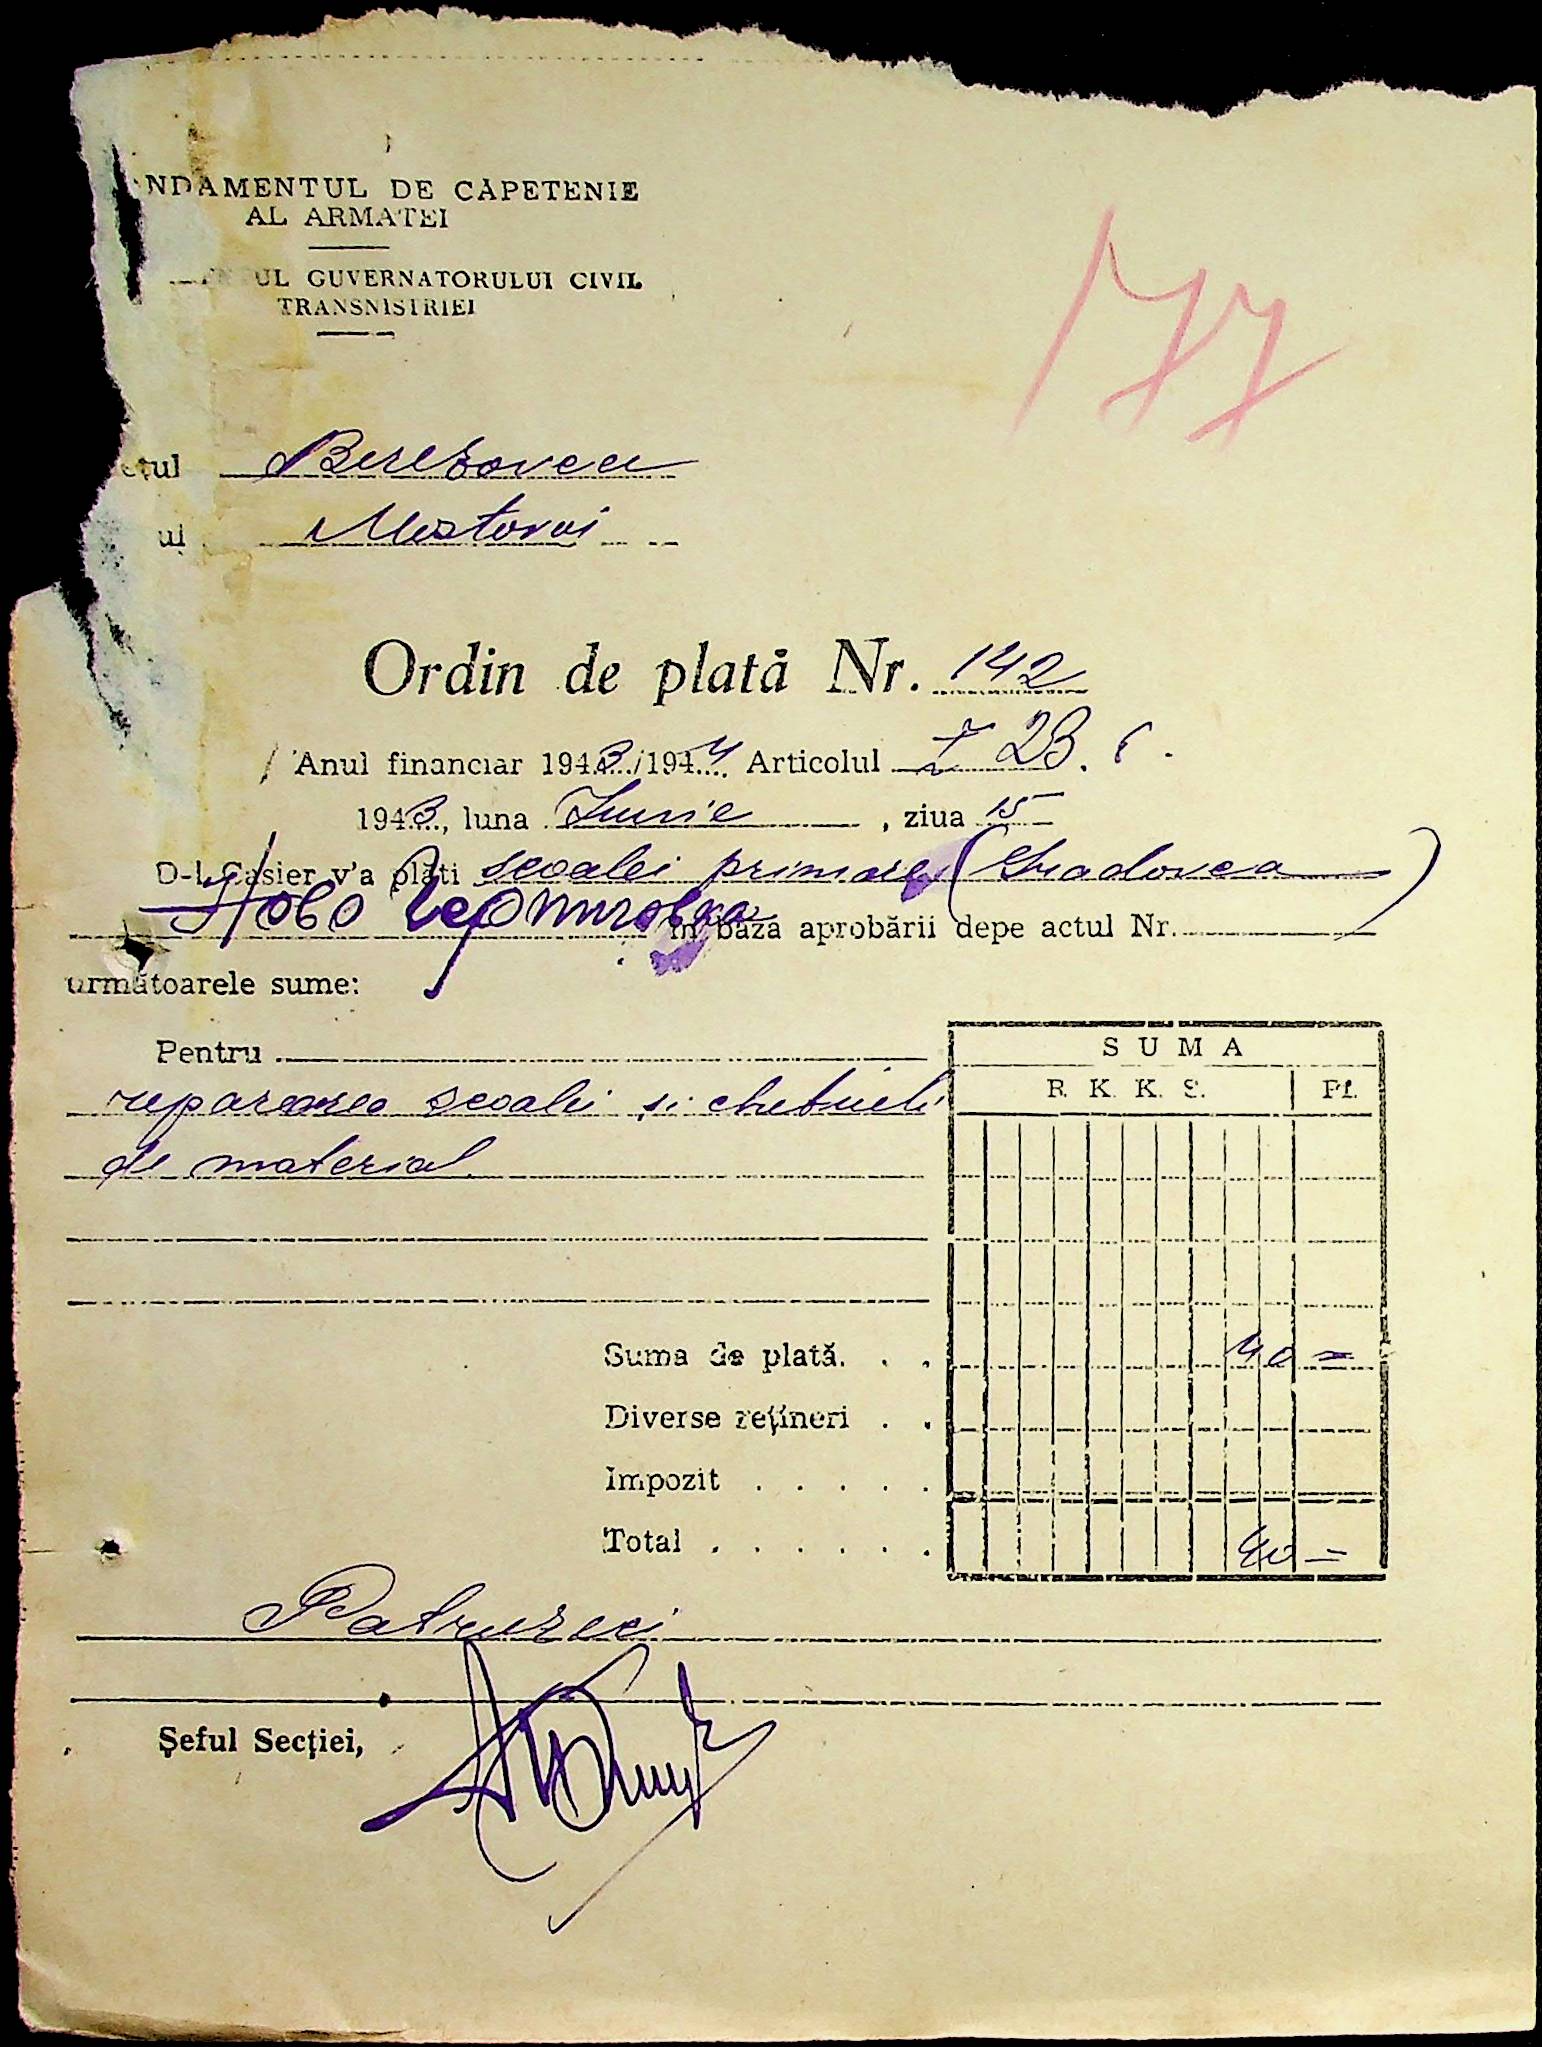 NDAMENTUL DE CAPETENIE
AL ARMATEI
UL GUVERNATORULUI CIVIL
TRANSNISTRIEI
177
ețul Berezovca
ui Mostovoi
Ordin de plată Nr. 142
Anul financiar 1943/1944 Articolul I 23.
1943, luna Iunie, ziua 15
D-l Casier v'a plăti școalei primare (Gradovca)
Ново în baza aprobării depe actul Nr.
următoarele sume:
Pentru
S U M A
R. K. K. S. Pf.
repararea școalei și chetuieli
de material
Suma de plată. . . 40 =
Diverse rețineri . .
Impozit . . . . .
Total . . . . . . 40 =
Patruzeci
Șeful Secției,